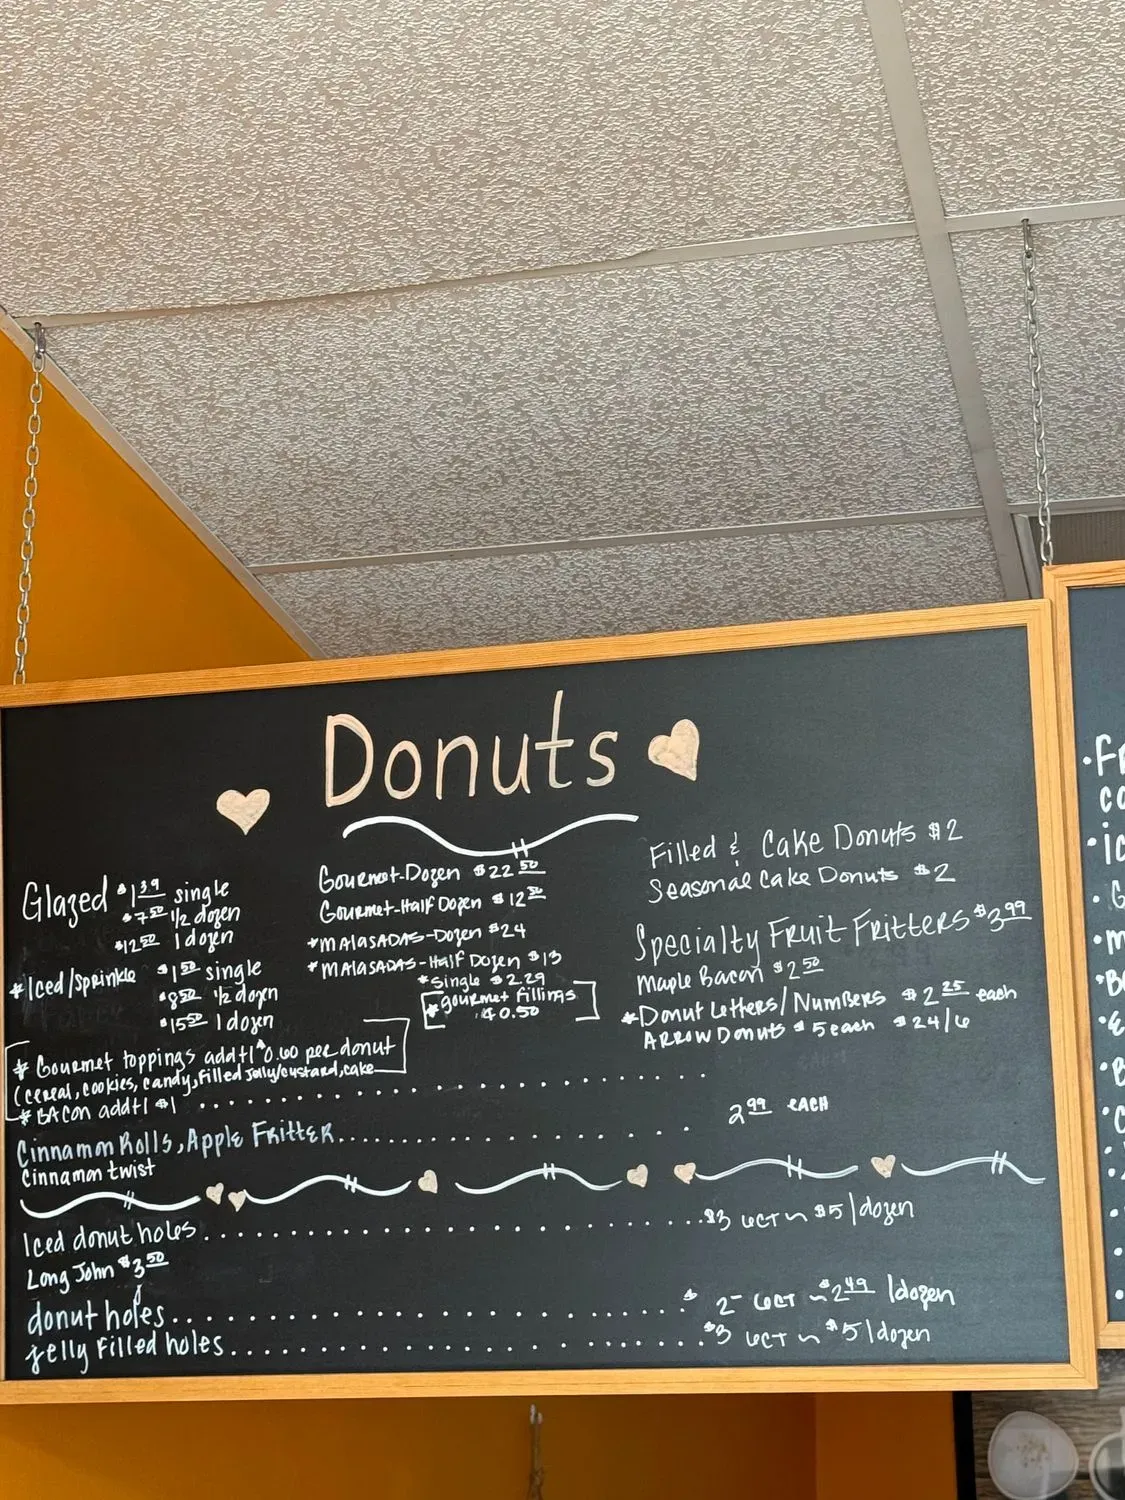 Donuts
Glazed $1.39 single
$7.50 1/2 dozen
$12.50 1 dozen
*Iced/Sprinkle $1.50 single
$8.50 1/2 dozen
$15.50 1 dozen
* Gourmet toppings addtl $0.60 per donut
(cereal, cookies, candy, Filled Jelly/custard, cake
* BACON addtl $1
Gourmet-Dozen $22.50
Gourmet-Half Dozen $12.50
*MALASADAS-Dozen $24
*MALASADAS-Half Dozen $13
*single $2.29
*gourmet fillings
$0.50
Filled & Cake Donuts $2
Seasonal Cake Donuts $2
Specialty Fruit Fritters $3.99
Maple Bacon $2.50
*Donut Letters/Numbers $2.25 each
ARROW Donuts $5 each $24/6
Cinnamon Rolls, Apple Fritter 2.99 EACH
Cinnamon twist
Iced donut holes $3 6CT ~ $5/dozen
Long John $3.50
donut holes $2- 6CT ~ $2.49 1dozen
jelly Filled holes $3 6CT ~ $5/dozen